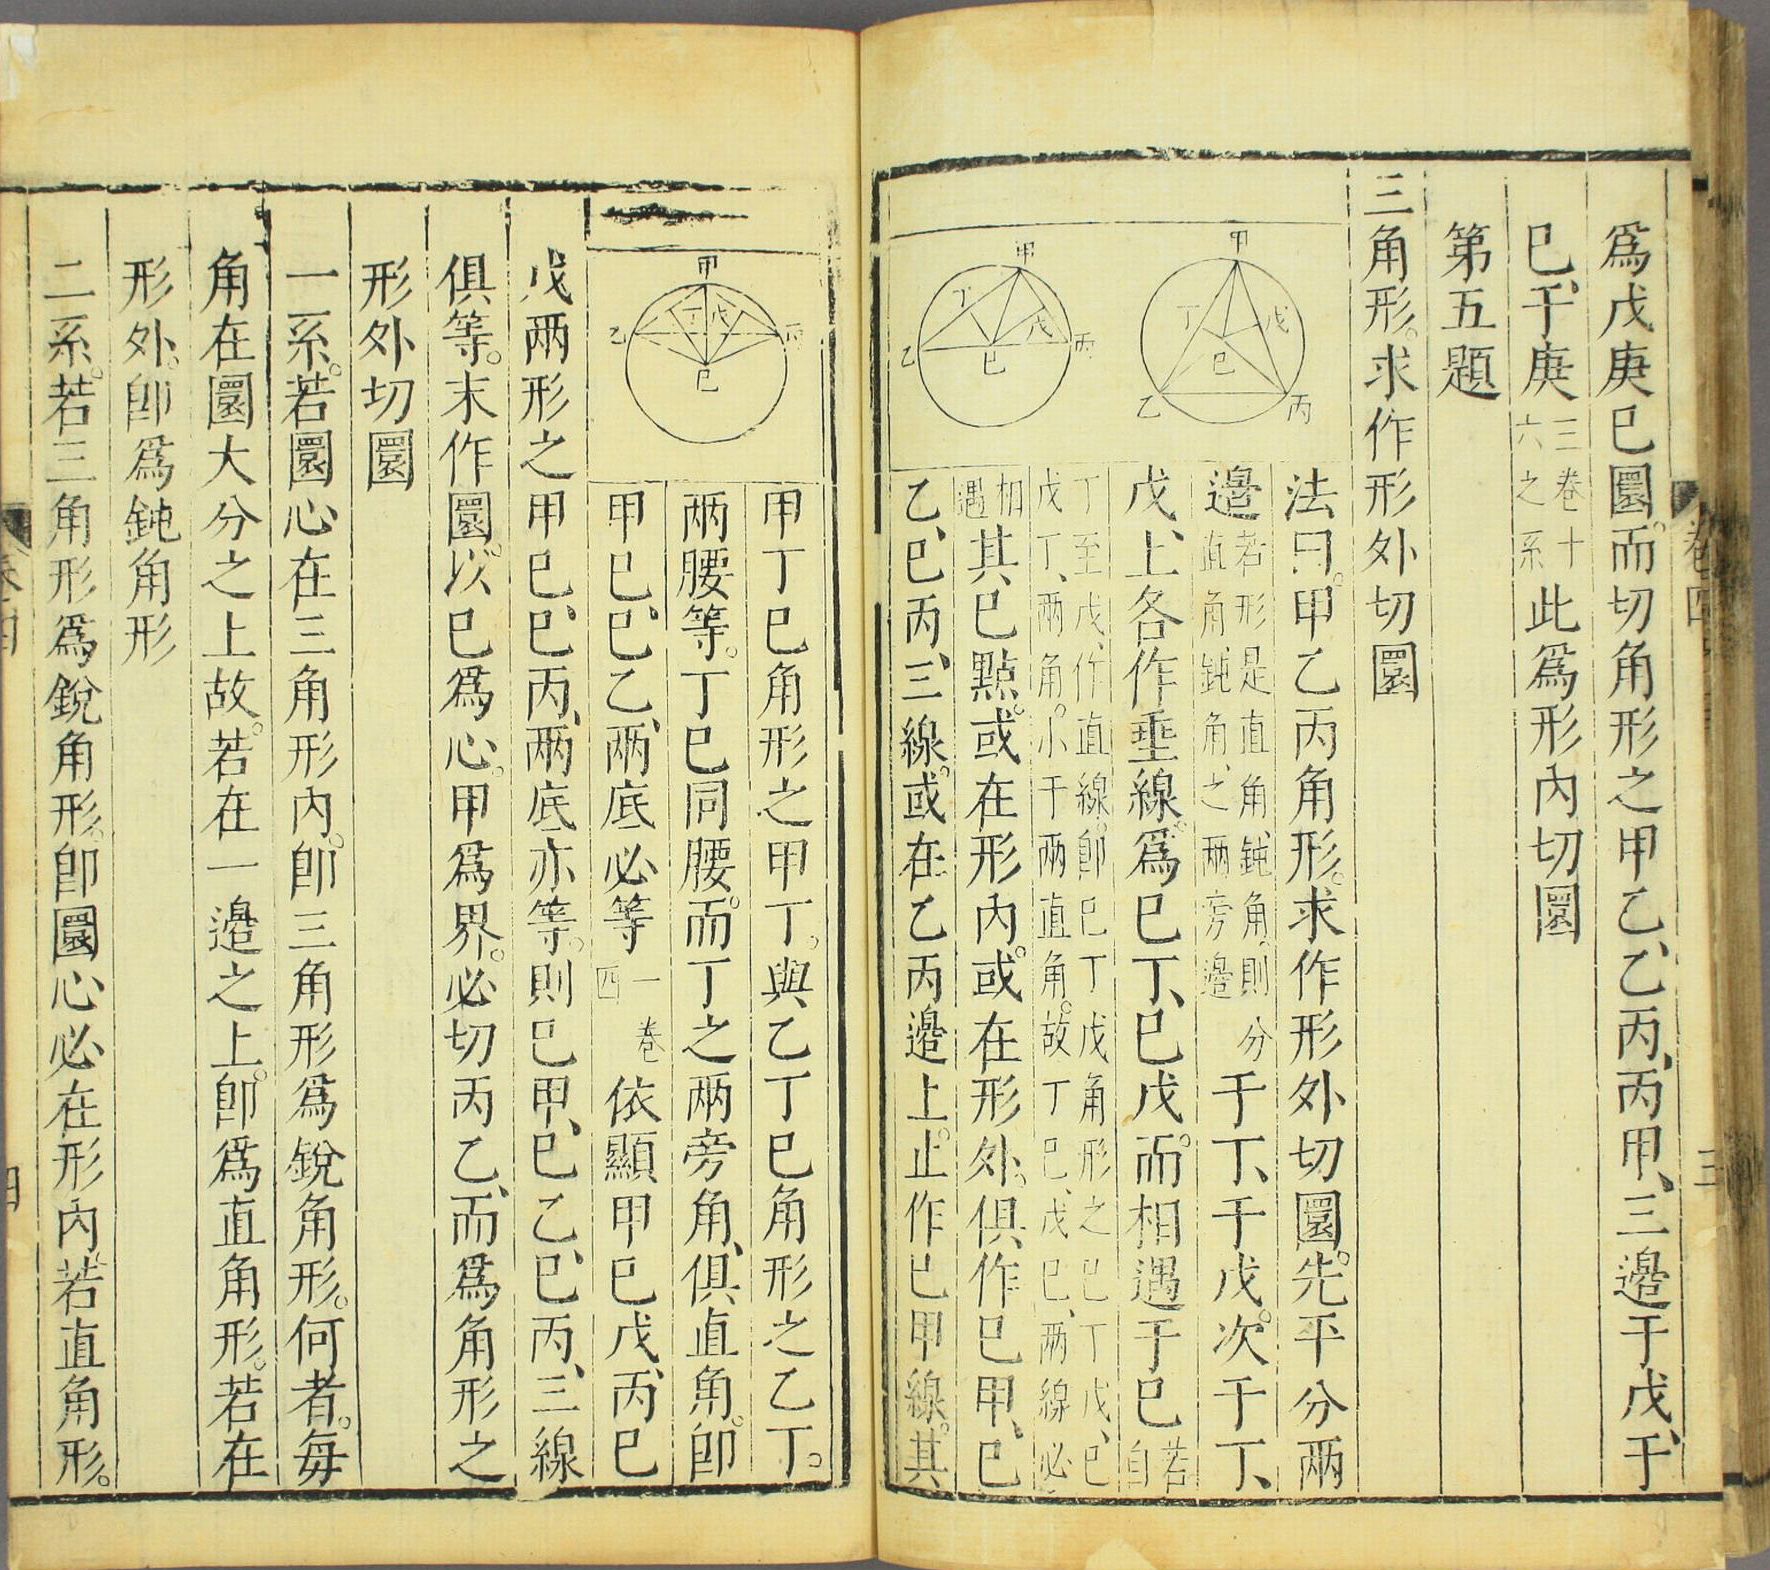 爲戊庚巳圜。而切角形之甲乙、乙丙、丙甲、三邉于戊、于
巳、于庚三卷十六之系此爲形內切圜
第五題
三角形。求作形外切圜
甲
丁
戊
巳
乙
丙
甲
丁
戊
巳
乙
丙
法曰。甲乙丙角形。求作形外切圜。先平分兩
邉若形是直角鈍角、則分直角鈍角、之兩旁邉于丁、于戊。次于丁、
戊、上各作垂線。爲巳丁、巳戊。而相遇于巳若自
丁至戊、作直線。卽巳丁戊角形之巳丁戊、巳戊丁、兩角。小于兩直角。故丁巳、戊巳、兩線必
相遇其巳點。或在形內。或在形外。俱作巳甲、巳
乙、巳丙、三線。或在乙丙邉上。止作巳甲線。其
卷四
三
甲
丁
戊
乙
丙
巳
甲丁巳角形之甲丁。與乙丁巳角形之乙丁。
兩腰等。丁巳同腰。而丁之兩旁角、俱直角。卽
甲巳、巳乙、兩底必等一卷四依顯甲巳戊、丙巳
戊兩形之甲巳、巳丙、兩底亦等。則巳甲、巳乙、巳丙、三線
俱等。末作圜。以巳爲心。甲爲界。必切丙乙、而爲角形之
形外切圜
一系。若圜心在三角形內。卽三角形爲銳角形。何者。每
角在圜大分之上故。若在一邉之上。卽爲直角形。若在
形外。卽爲鈍角形
二系。若三角形爲銳角形。卽圜心必在形內。若直角形。